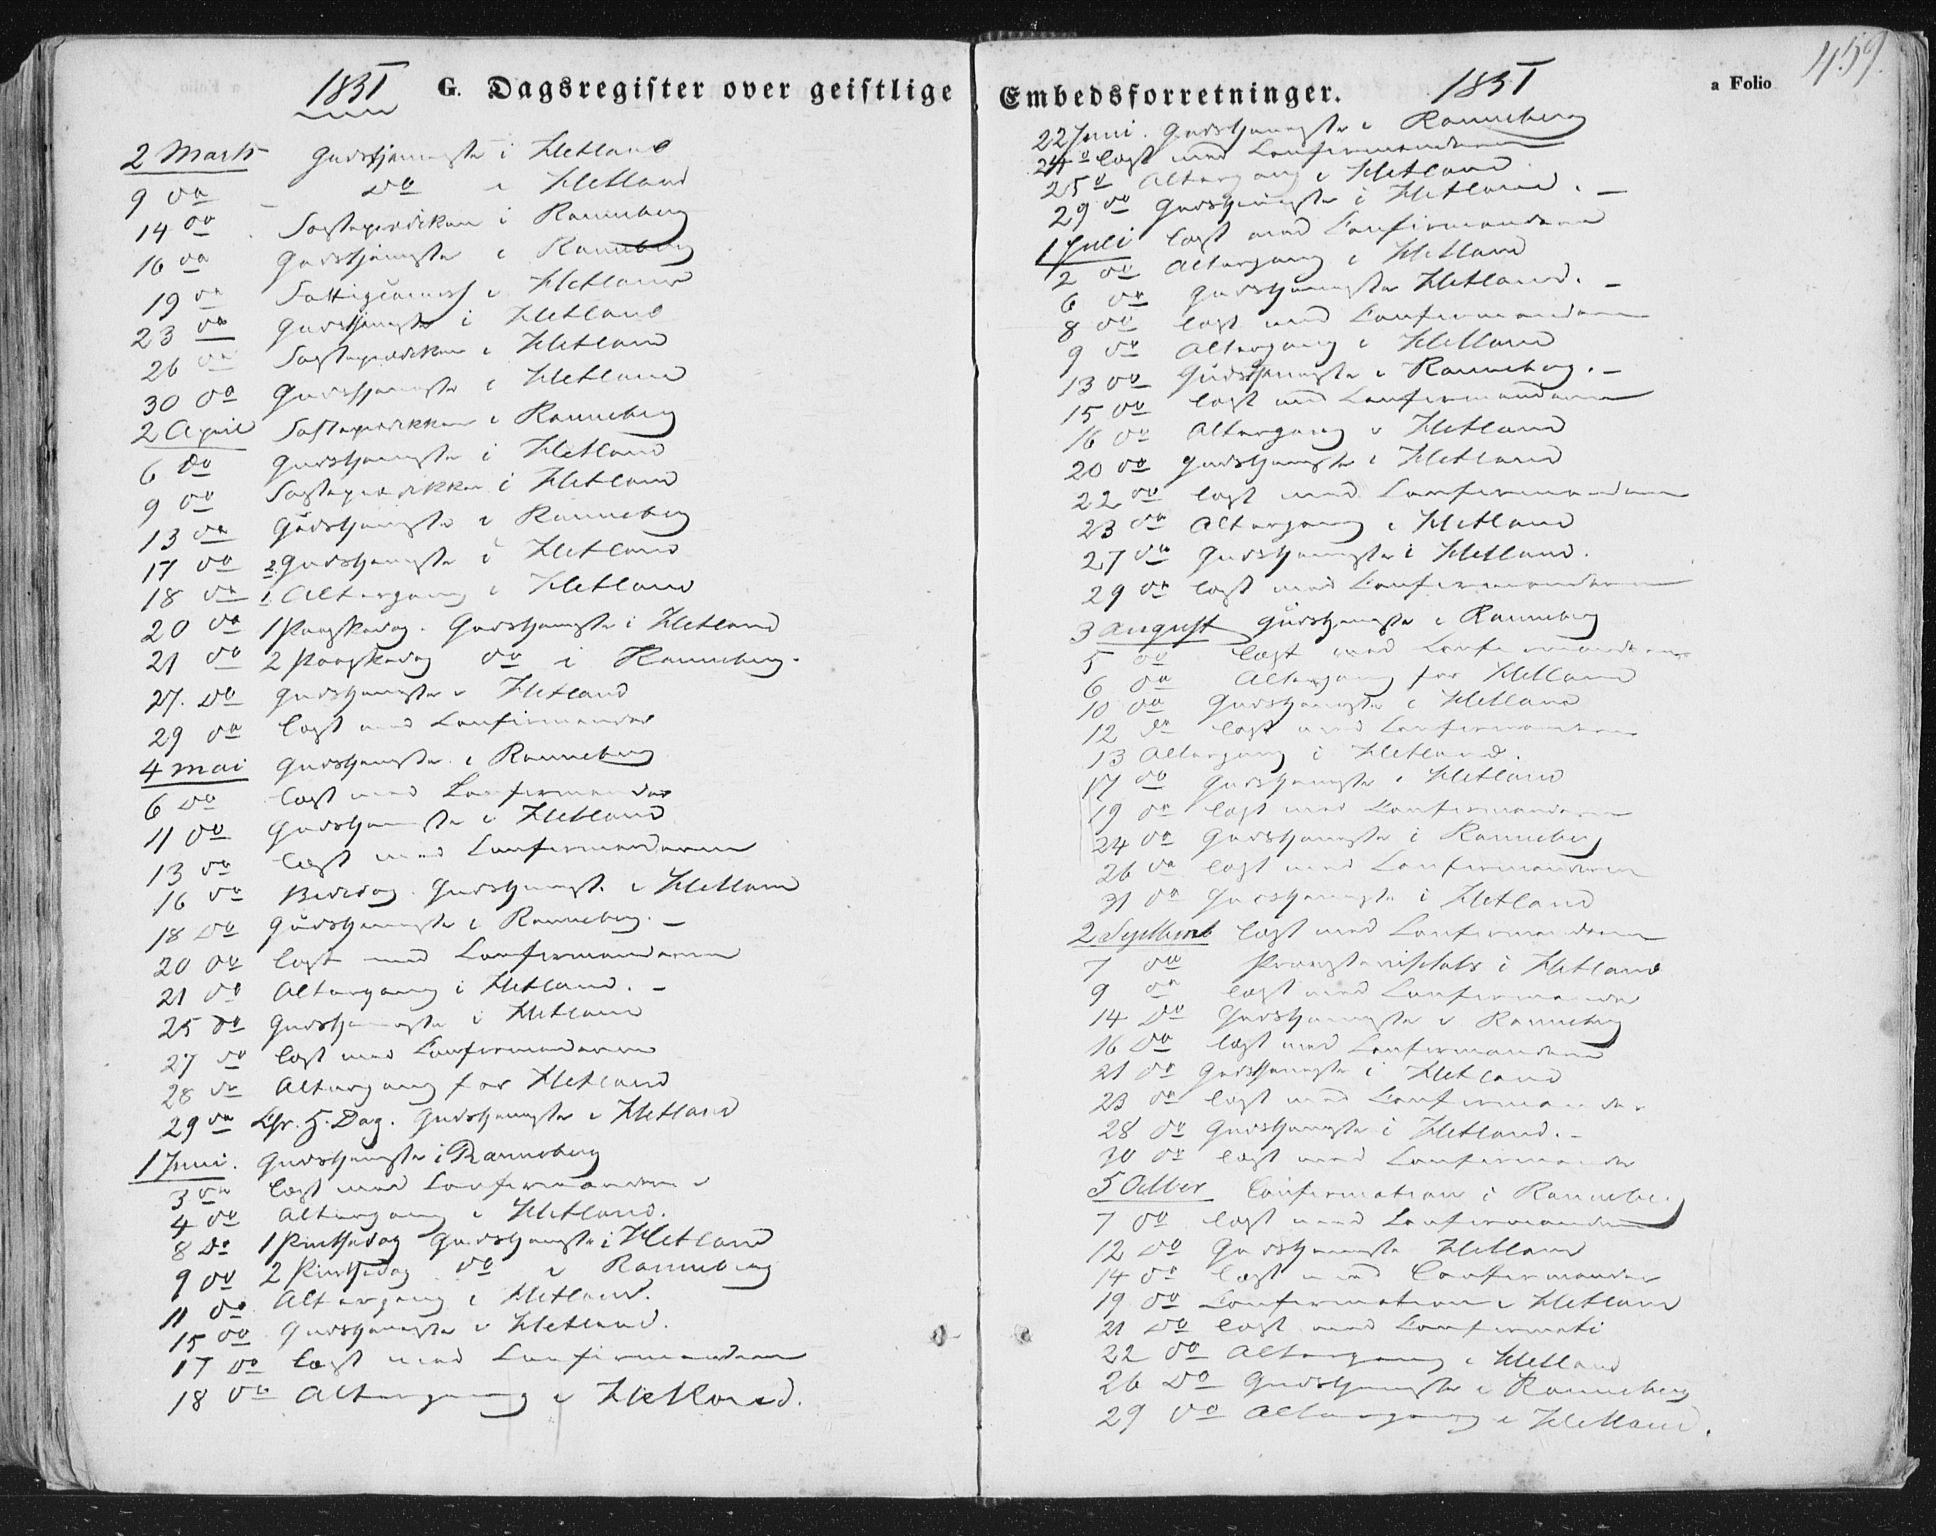 1851 G. Dagsregister over geistlige
2 Marts Gudstjeneste i Hetland
9 do do i Hetland
14 do Fasteprædiken i Ranneberg
16 do Gudstjeneste i Ranneberg
19 do i Hetland
23 do Gudstjeneste i Hetland
26 do Fasteprædiken i Hetland
30 do Gudstjeneste i Hetland
2 April Fasteprædikken i Ranneberg
6 do Gudstjeneste i Hetland
9 do Fasteprædikken i Hetland
13 do Gudstjeneste i Ranneberg
17 do 2. Gudstjeneste i Hetland
18 do 1. Altergang i Hetland
20 do 1 Paaskedag. Gudstjeneste i Hetland
21 do 2 Paaskedag do i Ranneberg.
27. do Gudstjeneste i Hetland
29 do læst med Confirmander
4 Mai Gudstjeneste i Ranneberg
6 do læst med Confirmander
11 do Gudstjeneste i Hetland
13 do læst med Confirmanderne
16 do Bededag. Gudstjeneste i Hetland
18 do Gudstjeneste i Ranneberg. –
20 do læst med Confirmanderne
21 do Altergang i Hetland. –
25 do Gudstjeneste i Hetland
27 do læst med Confirmanderne
28 do Altergang for Hetland
29 do Chr. H. Dag. Gudstjeneste i Hetland
1 Juni. Gudstjeneste i Ranneberg
3 do læst med Confirmanderne
4 do Altergang i Hetland.
8 do 1 Pintsedag Gudstjeneste i Hetland
9 do 2 Pintsedag do i Ranneberg
11 do Altergang i Hetland.
15 do Gudstjeneste i Hetland.
17 do læst med Confirmanderne
18 do Altergang i Hetland.
Embedsforretninger. 1851 a Folio 459.
22 Juni. Gudstjeneste i Ranneberg
24 do læst med Confirmanderne
25 do Altergang i Hetland
29 do Gudstjeneste i Hetland. –
1 Juli læst med Confirmanderne
2 do Altergang i Hetland
6 do Gudstjeneste Hetland. –
8 do læst med Confirmanderne
9 do Altergang i Hetland
13 do Gudstjeneste i Ranneberg. –
15 do læst med Confirmanderne
16 do Altergang i Hetland
20 do Gudstjeneste i Hetland
22 do læst med Confirmanderne
23 do Altergang i Hetland
27 do Gudstjeneste i Hetland.
29 do læst med Confirmanderne
3 August Gudstjeneste i Ranneberg
5 do læst med Confirmanderne
6 do Altergang for Hetland
10 do Gudstjeneste i Hetland
12 do læst med Confirmanderne
13 Altergang i Hetland.
17 do Gudstjeneste i Hetland
19 do læst med Confirmanderne
24 do Gudstjeneste i Ranneberg
26 do læst med Confirmanderne
31 do Gudstjeneste i Hetland
2 Septbr læst med Confirmanderne
7 do i Hetland
9 do læst med Confirmander
14 do Gudstjeneste i Ranneberg
16 do læst med Confirmanderne
21 do Gudstjeneste i Hetland
23 do læst med Confirmander
28 do Gudstjeneste i Hetland. –
30 do læst med Confirmander
5 Octbr Confirmation i Ranneberg
7 do læst med Confirmanderne
12 do Gudstjeneste Hetland
14 do læst med Confirmander
19 do Confirmation i Hetland
21 do læst med
22 do Altergang i Hetland
26 do Gudstjeneste i Ranneberg
29 do Altergang i Hetland.